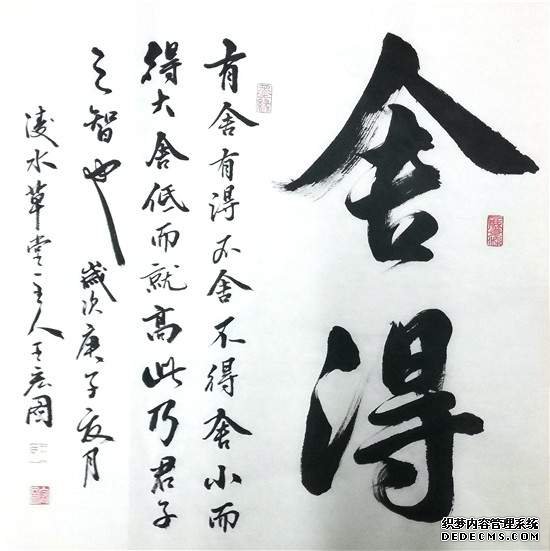 舍得
有舍有得不舍不得舍小而
得大舍低而就高此乃君子
之智也 歲次庚子夏月
淩水草堂主人王宏国
织梦内容管理系统
DEDECMS.COM